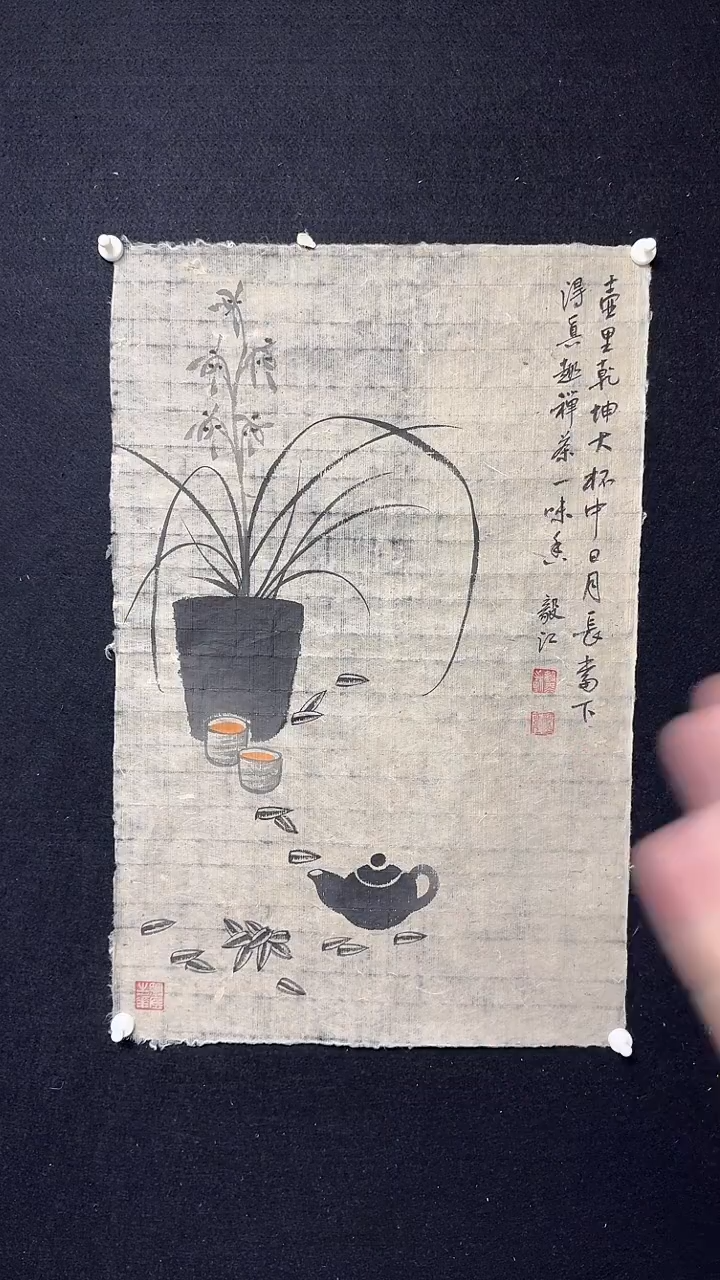 壷里乾坤大杯中日月長當下
得真趣禪茶一味香
毅江